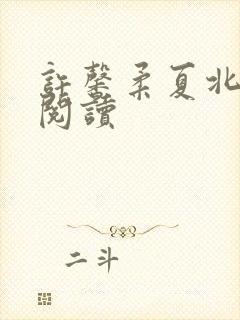 許馨柔夏北
閱讀
二斗